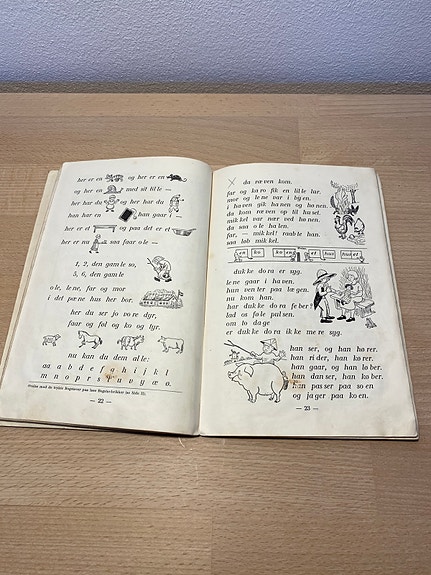 her er en og her er en
og her er en med sit lil le —
her har du her har du
han har en han gaar i —
her er et og paa det er et
her er nu saa faar ole —
1, 2, den gam le so,
5, 6, den gamle
o le, le ne, far og mor
i det pæ ne hus her bor.
her du ser jo vo re dyr,
faar og føl og ko og dyr.
nu kan du dem al le:
a a b d e f g h i j k l
m n o p r s t u v y æ ø.
— 22 —
da ræ ven kom.
far og ka ro fik en lil le lur.
mor og le ne var i by en.
i ha ven gik ha nen og hø nen.
da kom ræ ven op til hu set.
mik kel var nær ved hø nen.
da saa o le ha len.
far, — mik kel! raab te han.
saa løb mik kel.
en ko ko en et hus hus et
duk ke do ra er syg.
le ne gaar i ha ven.
hun ven ter paa læ gen.
nu kom han.
har duk ke do ra fe ber?
lad os fø le pul sen.
om to da ge
er duk ke do ra ik ke me re syg.
han ser, og han hø rer.
han ri der, han kø rer.
han gaar, og han lø ber.
han dan ser, han kø ber.
han pas ser paa so en
og ja ger paa ko en.
— 23 —